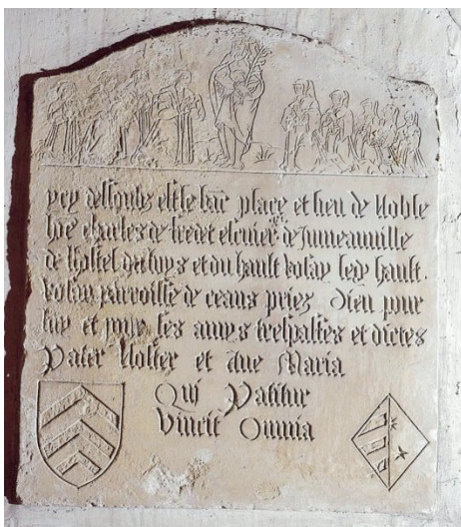 ycy dessoubs est le bãc place et lieu de Noble
hõe charles de tredet escuier de
de lhostel et du hault ledꝫ hault
parroisse de ceans priez Dieu pour
luy et pour ses amys trespasses et dictes
Pater Noster et Aue Maria
Qui Patitur
Vincit Omnia